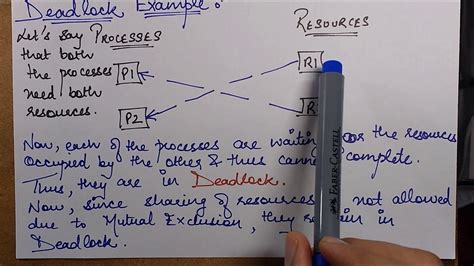 Deadlock Example:
RESOURCES
Let's say PROCESSES
that both
the processes
need both
resources.
P1
R1
P2
R
Now, each of the processes are waiting for the resources
Occupied by the other & thus cannot complete.
Thus, they are in Deadlock.
Now, since sharing of resources not allowed
due to Mutual Exclusion, they remain in
Deadlock.
FABER-CASTELL